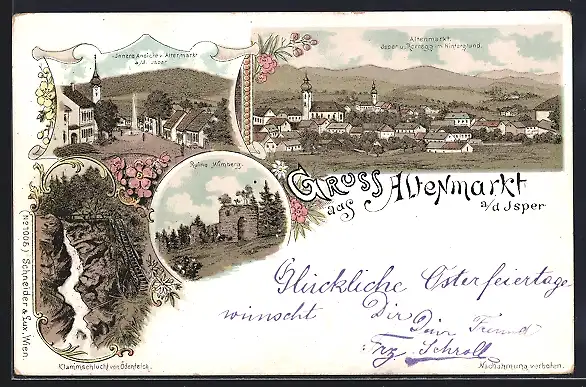 Innere Ansicht v. Altenmarkt
a/d. Isper
Altenmarkt.
Isper u. Rorregg im Hintergrund.
Ruine Wimberg.
GRUSS aus Altenmarkt
a/d Isper
Glückliche Osterfeiertage
wünscht Dir
Dein Freund
Frz Schroll
Klammschlucht von Ödenteich.
Nachahmung verboten.
(No 1006) Schneider & Lux, Wien.